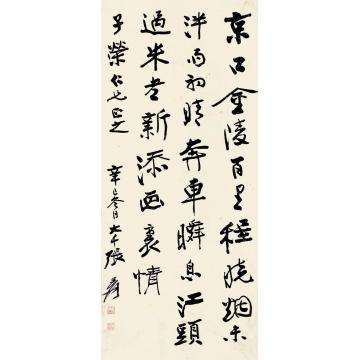 京口金陵百里程曉烟未
泮雨初晴奔車瞬息江頭
過米老新添画裏情
子榮仁兄正之 辛巳冬日大千張爰